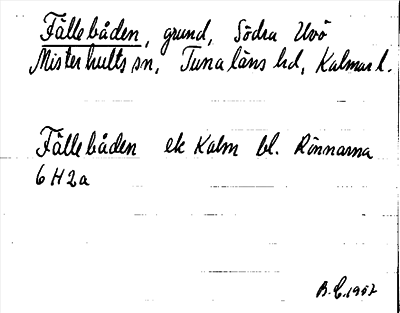 Fällebåden, grund, Södra Uvö
Misterhults sn, Tunaläns hd, Kalmar l.
Fällebåden ek Kalm bl. Rönnarna
6 H 2 a
B.C. 1957